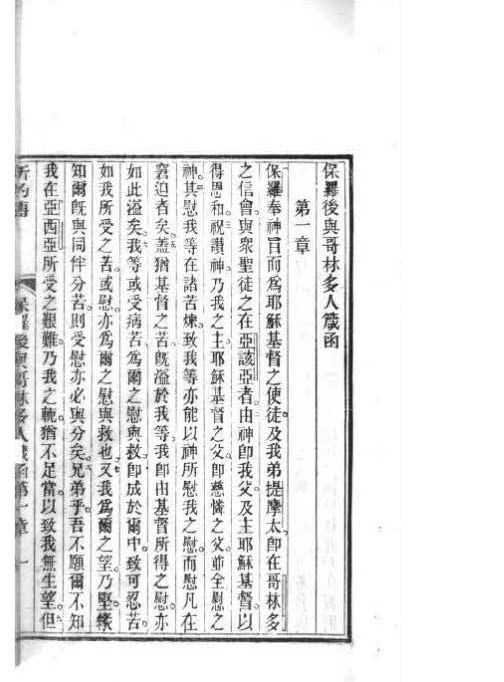 保羅後與哥林多人箴函
第一章
保羅奉神旨而為耶穌基督之使徒及我弟提摩太即在哥林多
之信會與眾聖徒之在亞該亞者由神即我父及主耶穌基督以
得恩和祝讚神乃我之主耶穌基督之父即慈憐之父並全慰之
神其慰我等在諸苦煉致我等亦能以神所慰我之慰而慰凡在
窘迫者矣蓋猶基督之苦既溢於我等我即由基督所得之慰亦
如此溢矣我等或受病苦為爾之慰與救即成於爾中致可忍苦
如我所受之苦或慰亦為爾之慰與救也又我為爾之望乃堅
知爾既與同伴分苦則受慰亦必與分矣兄弟乎吾不願爾不知
我在亞西亞所受之艱難乃我之軛猶不足當以致我無生望但
保羅後與哥林多人箴函第一章 一